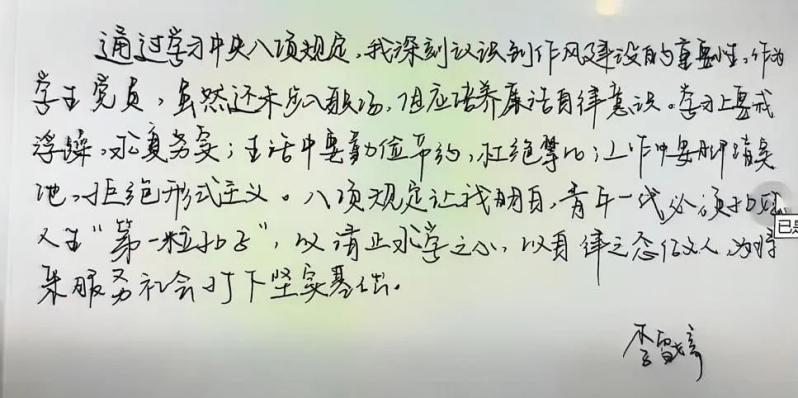 通过学习中央八项规定,我深刻认识到作风建设的重要性。作为
学生党员,虽然还未步入职场,但应培养廉洁自律意识。学习上要戒
浮躁,求真务实;生活中要勤俭节约,杜绝攀比;工作中要脚踏实
地,拒绝形式主义。八项规定让我明白,青年一代必须扣好
人生"第一粒扣子",以清正求学之心,以自律之态做人,为将
来服务社会打下坚实基础。
李
已是